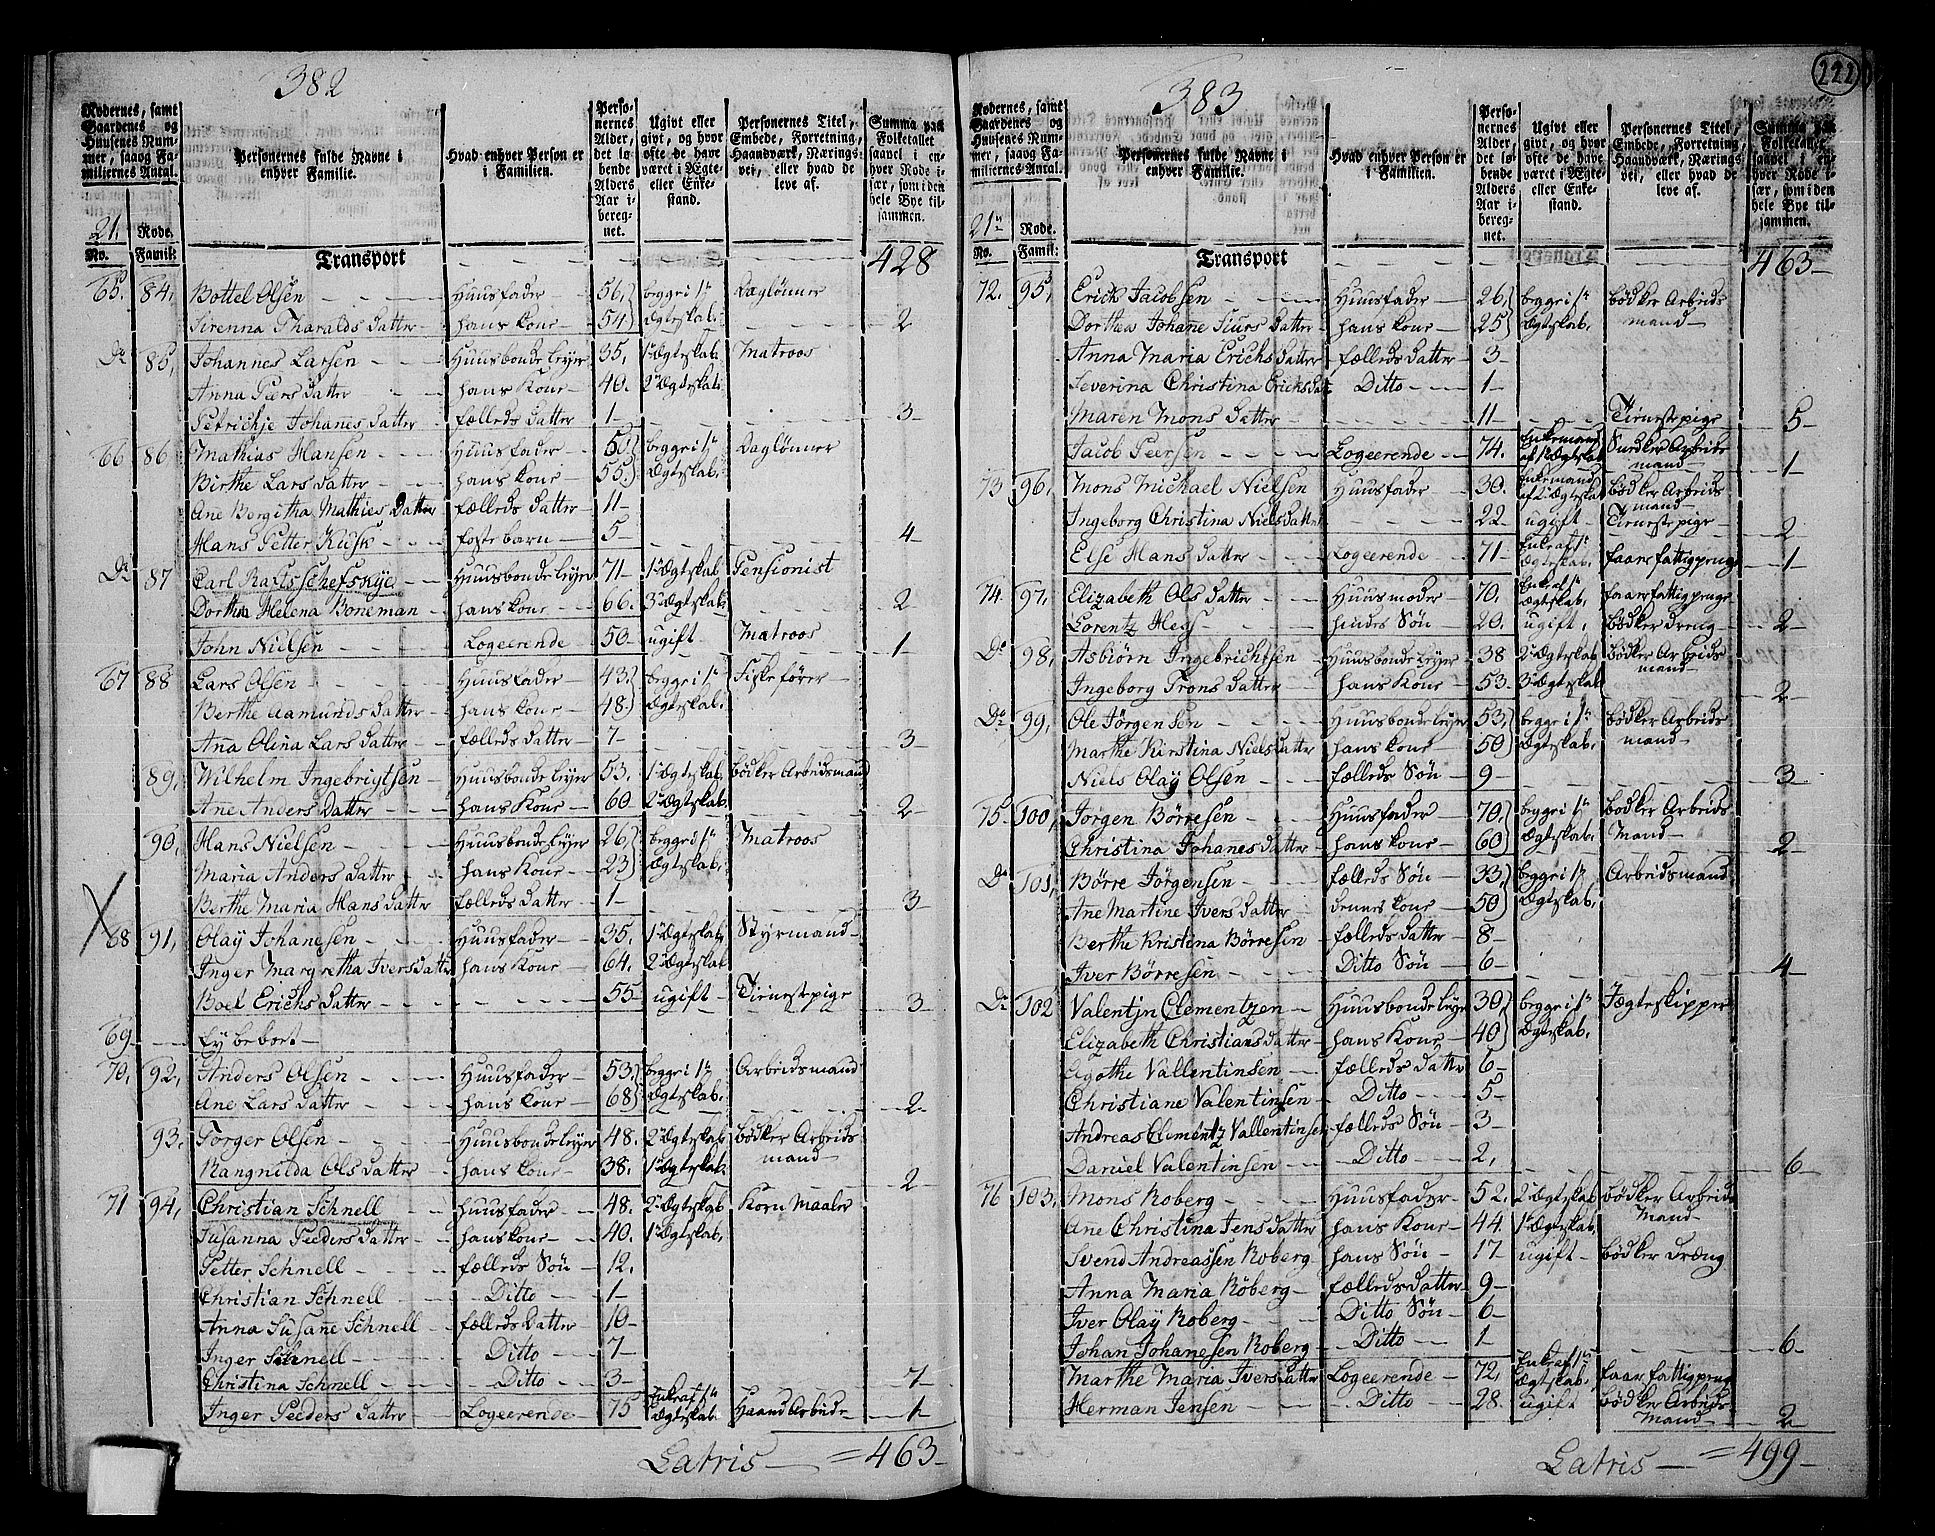 382
Rodernes, samt Gaardenes og Husenes Nummer, saaog Familiernes Antal.
Personernes fulde Navne i enhver Familie.
Hvad enhver Person er i Familien.
Personernes Alder, det løbende Alders Aar iberegnet.
Ugivt eller givt, og hvor ofte de have været i Ægte- eller Enkestand.
Personernes Titel, Embede, Forretning, Haandværk, Næringsvei, eller hvad de leve af.
Summa paa Folketallet saavel i enhver Rode især, som i den hele Bye tilsammen.
21. Rode.
No. Famil:
Transport 428
65. 84, Bottel Olsen Huusfader 56, begge i 1ste Daglønner
Sirenna Tharalds datter hans kone 54 Ægteskab. 2
Do 85, Johannes Larsen Huusbonde leyer 35, 1 Ægteskab Matroos
Anna Peers datter hans Kone 40. 2 Ægteskab
Petrickje Johanes datter fælleds datter 1 3
66 86 Mathias Hansen Huusfader 50 begge i 1ste Daglønner
Birthe Lars datter hans kone 55. Ægteskab.
Ane Bergitha Mathies datter fælleds datter 11
Hans Petter Kusk foster barn 5 4
Do 87 Carl Rafts Schefsnye Huusbonde leyer 71 1 Ægteskab Pensionist
Dorthea Helena Boneman hans kone 66. 3 Ægteskab 2
John Nielsen Logeerende 50 ugift Matroos 1
67 88 Lars Olsen Huusfader 43. begge i 1ste Fiskefører
Berthe Aamunds datter hans kone 48 Ægteskab.
Ana Olina Lars datter fælleds datter 7 3
89, Wilhelm Ingebrigtsen Huusbonde leyer 53. 1 Ægteskab, bødker Arbeidsmand
Ane Anders datter hans Kone 60 2 Ægteskab. 2
90, Hans Nielsen Huusbonde leyer 26, begge i 1ste Matroos
Maria Anders datter hans Kone 23 Ægteskab.
Berthe Maria Hans datter fælleds datter 1 3
68 91, Olay Johanesen Huusfader 35. 1 Ægteskab Styrmand
Inger Margretha Ivers datter hans Kone 64. 2 Ægteskab
Boel Erichs datter 55 ugift Tienestepige 3
69
70, 92, Anders Olsen Huusfader 53. begge i 1ste Arbeidsmand
Ane Lars datter hans kone 68 Ægteskab. 2
93. Torger Olsen Huusbonde leyer 48. 2 Ægteskab bødker Arbeids
Rangnilda Ols datter hans kone 38. 1 Ægteskab mand 2
71 94, Christian Schnell Huusfader 48. 2 Ægteskab Korn Maaler
Susanna Peders datter hans kone 40. 1 Ægteskab.
Petter Schnell fælleds Søn 12.
Christian Schnell Ditto 1
Anna Susane Schnell fælleds datter 10
Inger Schnell Ditto 7
Christina Schnell Ditto 3 7
Inger Peders datter Logeerende 75 Enke af 1ste Ægteskab Haand Arbeide 1
Latris = 463
383
222
Rodernes, samt Gaardenes og Husenes Nummer, saaog Familiernes Antal.
Personernes fulde Navne i enhver Familie.
Hvad enhver Person er i Familien.
Personernes Alder, det løbende Alders Aar iberegnet.
Ugivt eller givt, og hvor ofte de have været i Ægte- eller Enkestand.
Personernes Titel, Embede, Forretning, Haandværk, Næringsvei, eller hvad de leve af.
Summa paa Folketallet saavel i enhver Rode især, som i den hele Bye tilsammen.
21 Rode.
No. Famil:
Transport 463
72. 95, Erick Jacobsen Huusfader 26, begge i 1ste bødker Arbeids
Dorthea Johane Siurs datter hans kone 25 Ægteskab. mand
Anna Maria Erichs datter fælleds datter 3
Severina Christina Erichs dat Ditto 1
Maren Mons datter 11 Tienestepige 5
Jacob Peersen Logeerende 74. Enkemand af 1 Ægteskab Arbeids mand 1
73 96, Mons Michael Nielsen Huusfader 30. Enkemand af 1 Ægteskab bødker Arbeids mand
Ingeborg Christina Niels datter 22 ugift Tienestepige 2
Else Hans datter Logeerende 71 Enke af 1ste Ægteskab. faar fattigpenge 1
74 97, Elizabeth Ols datter Huusmoder 70. Enke af 1ste Ægteskab, faar fattigpenge
Lorentz Hess hendes Søn 20. ugift, bødker dreng 2
Do 98, Asbiørn Ingebrichtsen Huusbonde leyer 38 2 Ægteskab bødker Arbeids
Ingeborg Trons datter hans Kone 53 3 Ægteskab mand 2
Do 99, Ole Jørgensen Huusbonde leyer 53, begge i 1ste bødker Arbeids
Marthe Kerstina Niels datter hans kone 50 Ægteskab. mand
Niels Olay Olsen fælleds Søn 9 3
75 100, Jørgen Børresen Huusfader 70, begge i 1ste bødker Arbeids
Christina Johanes datter hans kone 60 Ægteskab. Mand 2
Do 101, Børre Jørgensen fælleds Søn 33, begge i 1ste Arbeidsmand
Ane Martine Ivers datter dennes kone 50 Ægteskab.
Berthe Kristina Børresen fælleds datter 8
Iver Børresen Ditto Søn 6 4
Do 102 Valentjn Clementzen Huusbonde leyer 30, begge i 1ste Jægteskipper
Elizabeth Christians datter hans Kone 40 Ægteskab.
Agothe Vallentinsen fælleds datter 6
Christiane Valentinsen Ditto 5
Andreas Clementz Vallentinsen fælleds Søn 3
Daniel Valentinsen Ditto 2, 6
76 103, Mons Roberg Huusfader 52. 2 Ægteskab bødker Arbeids
Ane Christina Jens datter hans Kone 44. 1 Ægteskab, Mand
Svend Andreassen Roberg hans Søn 17 ugift bødker dræng
Anna Maria Roberg fælleds datter 9
Iver Olay Roberg Ditto Søn 6
Johan Johanesen Roberg Ditto 1 6
Marthe Maria Ivers datter Logeerende 72, Enke af 1ste Ægteskab. faar fattigpenge
Herman Jensen Ditto 28. ugift bødker Arbeids Mand 2
Latris = 499